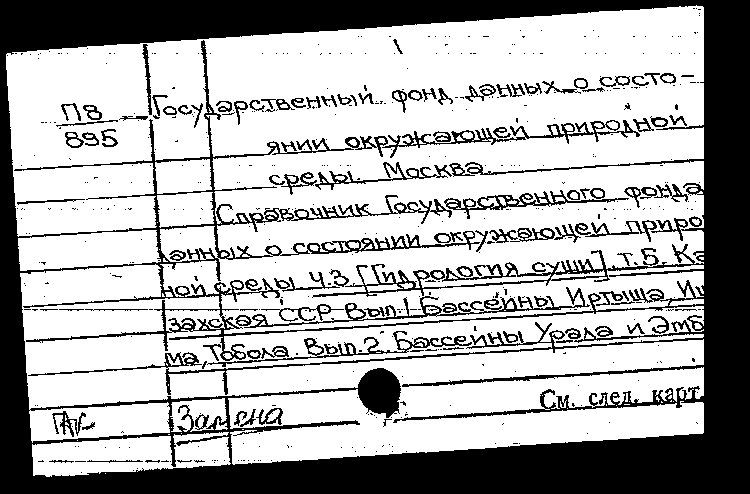 П8 Государственный фонд данных о состо-
895
янии окружающей природной
среды. Москва.
Справочник Государственного фонда
данных о состоянии окружающей природ
ной среды. Ч.3. [Гидрология суши]. т.5. Ка
захская ССР. Вып.1. Бассейны Иртыша, Иши
ма, Тобола. Вып.2. Бассейны Урала и Эмб
Замена
См. след. карт.